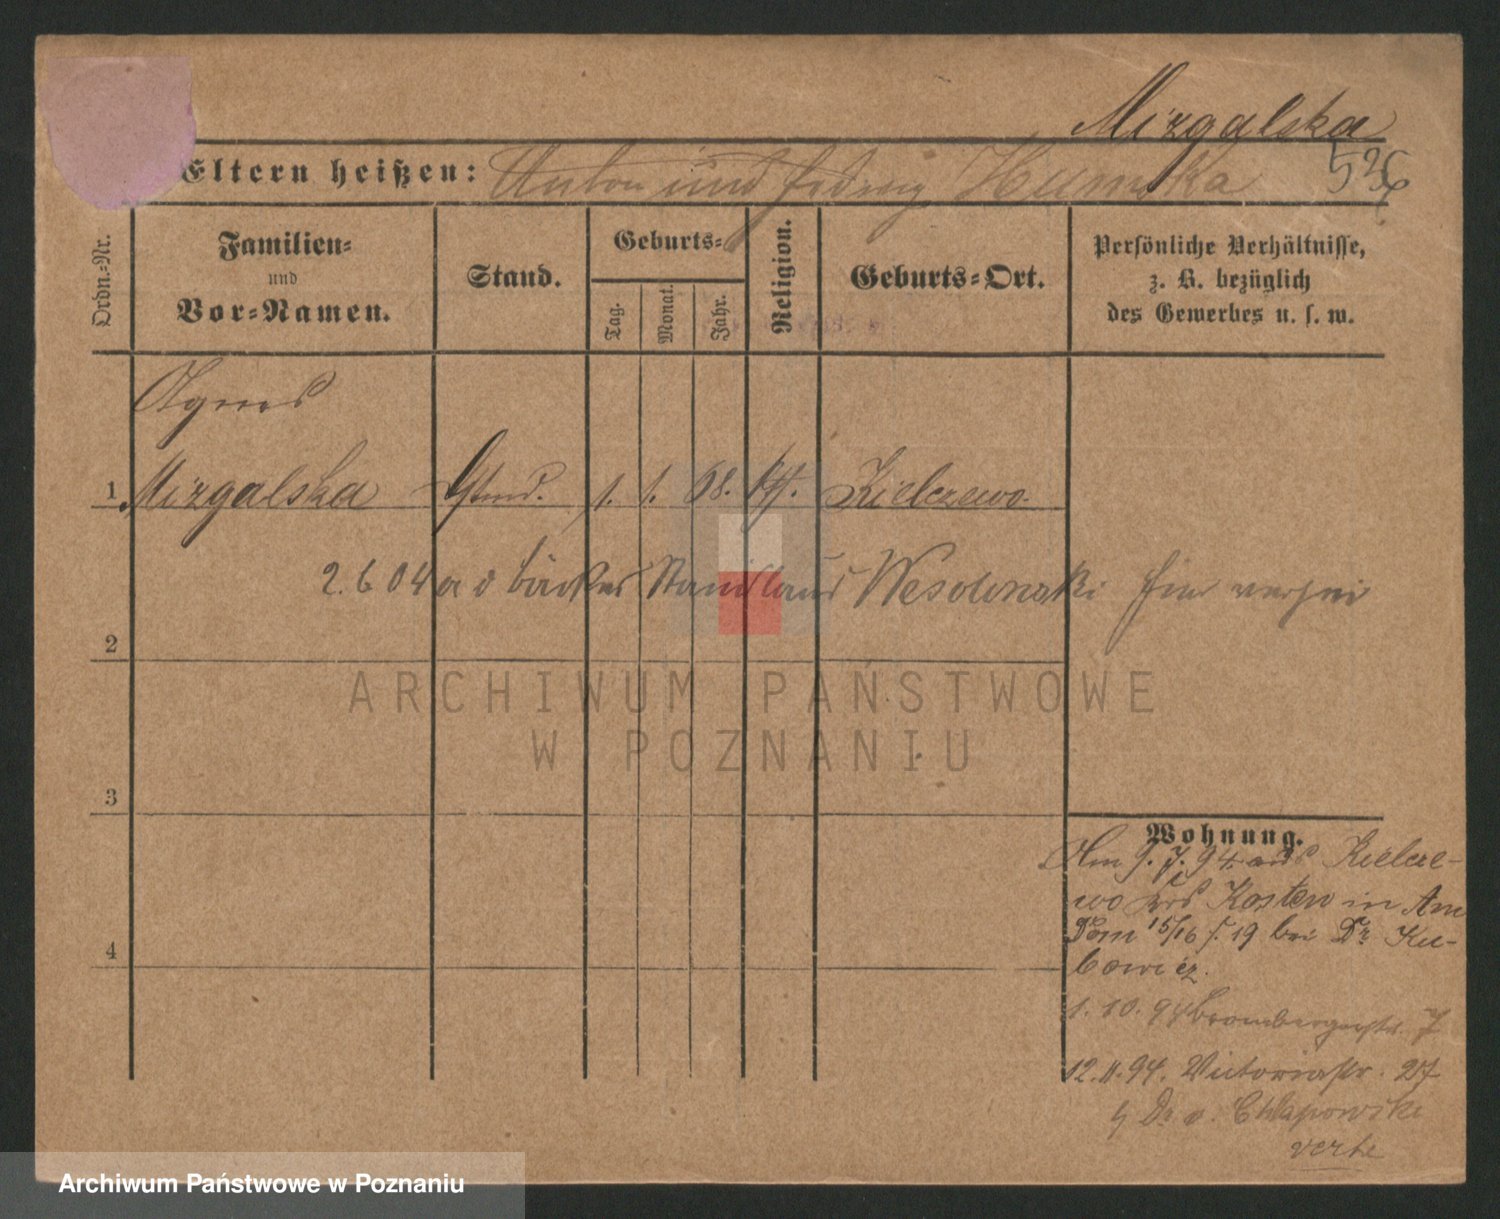 Mizgalska
Eltern heißen: Anton und Hedwig
526
Ordn.-Nr.
Familien-
und
Vor-Namen.
Stand.
Geburts-
Tag.
Monat.
Jahr.
Religion.
Geburts-Ort.
Persönliche Verhältnisse,
z. B. bezüglich
des Gewerbes u. s. w.
Agnes
1 Mizgalska 1. 1. 68. kath. Kielczewo
2. 6 04 a d Bäcker Stanislaus hier
2
3
4
Wohnung.
Am 9. 7. 94 aus Kielcze-
wo Krs Kosten in Am
Dom 15/16 19 bei Dr Ku-
bowicz.
1. 10. 94 Brombergerstr. 7
12. 11. 94. Victoriastr. 27
b Dr v. Chlapowski
verte
ARCHIWUM PAŃSTWOWE
W POZNANIU
Archiwum Państwowe w Poznaniu